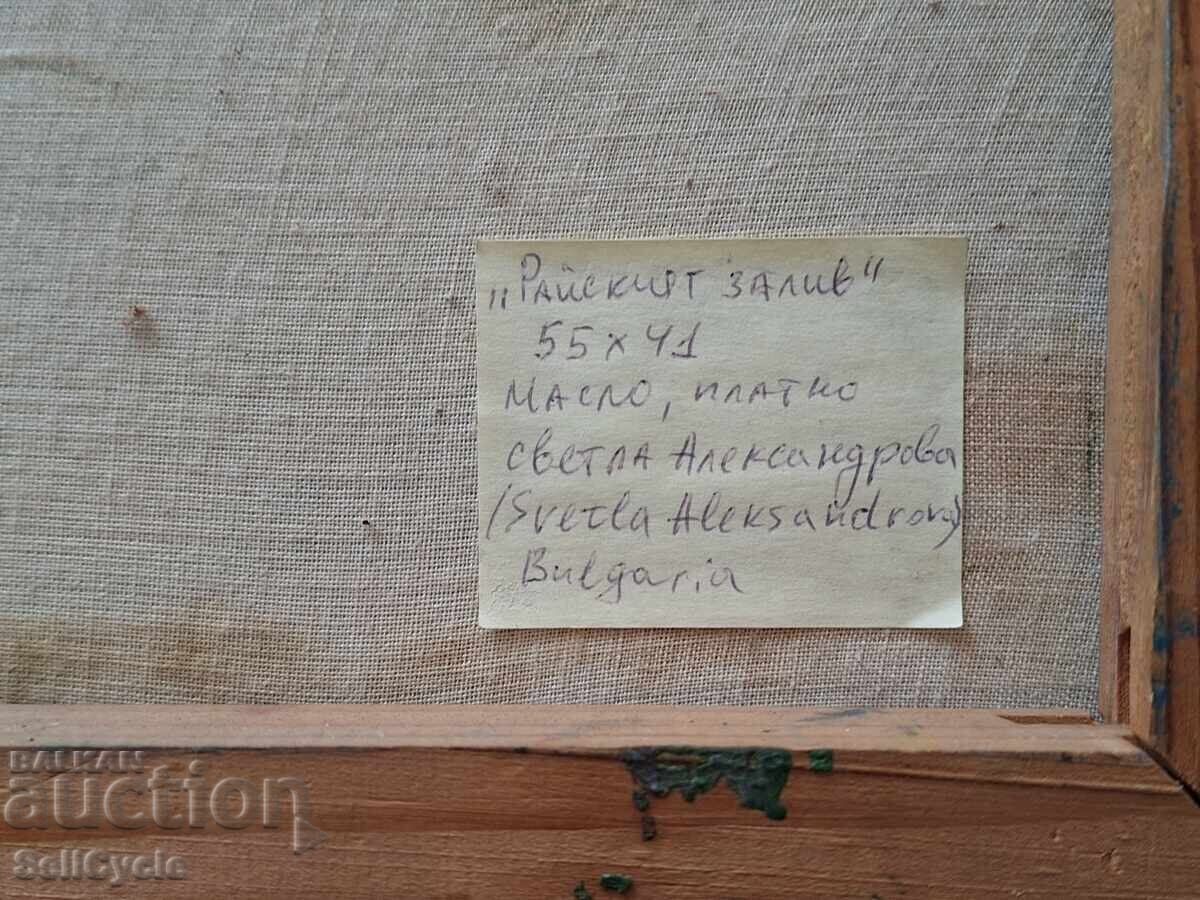 „Райският залив“
55 x 41
Масло, платно
Светла Александрова
(Svetla Aleksandrova)
Bulgaria
BALKAN
auction
SellCycle